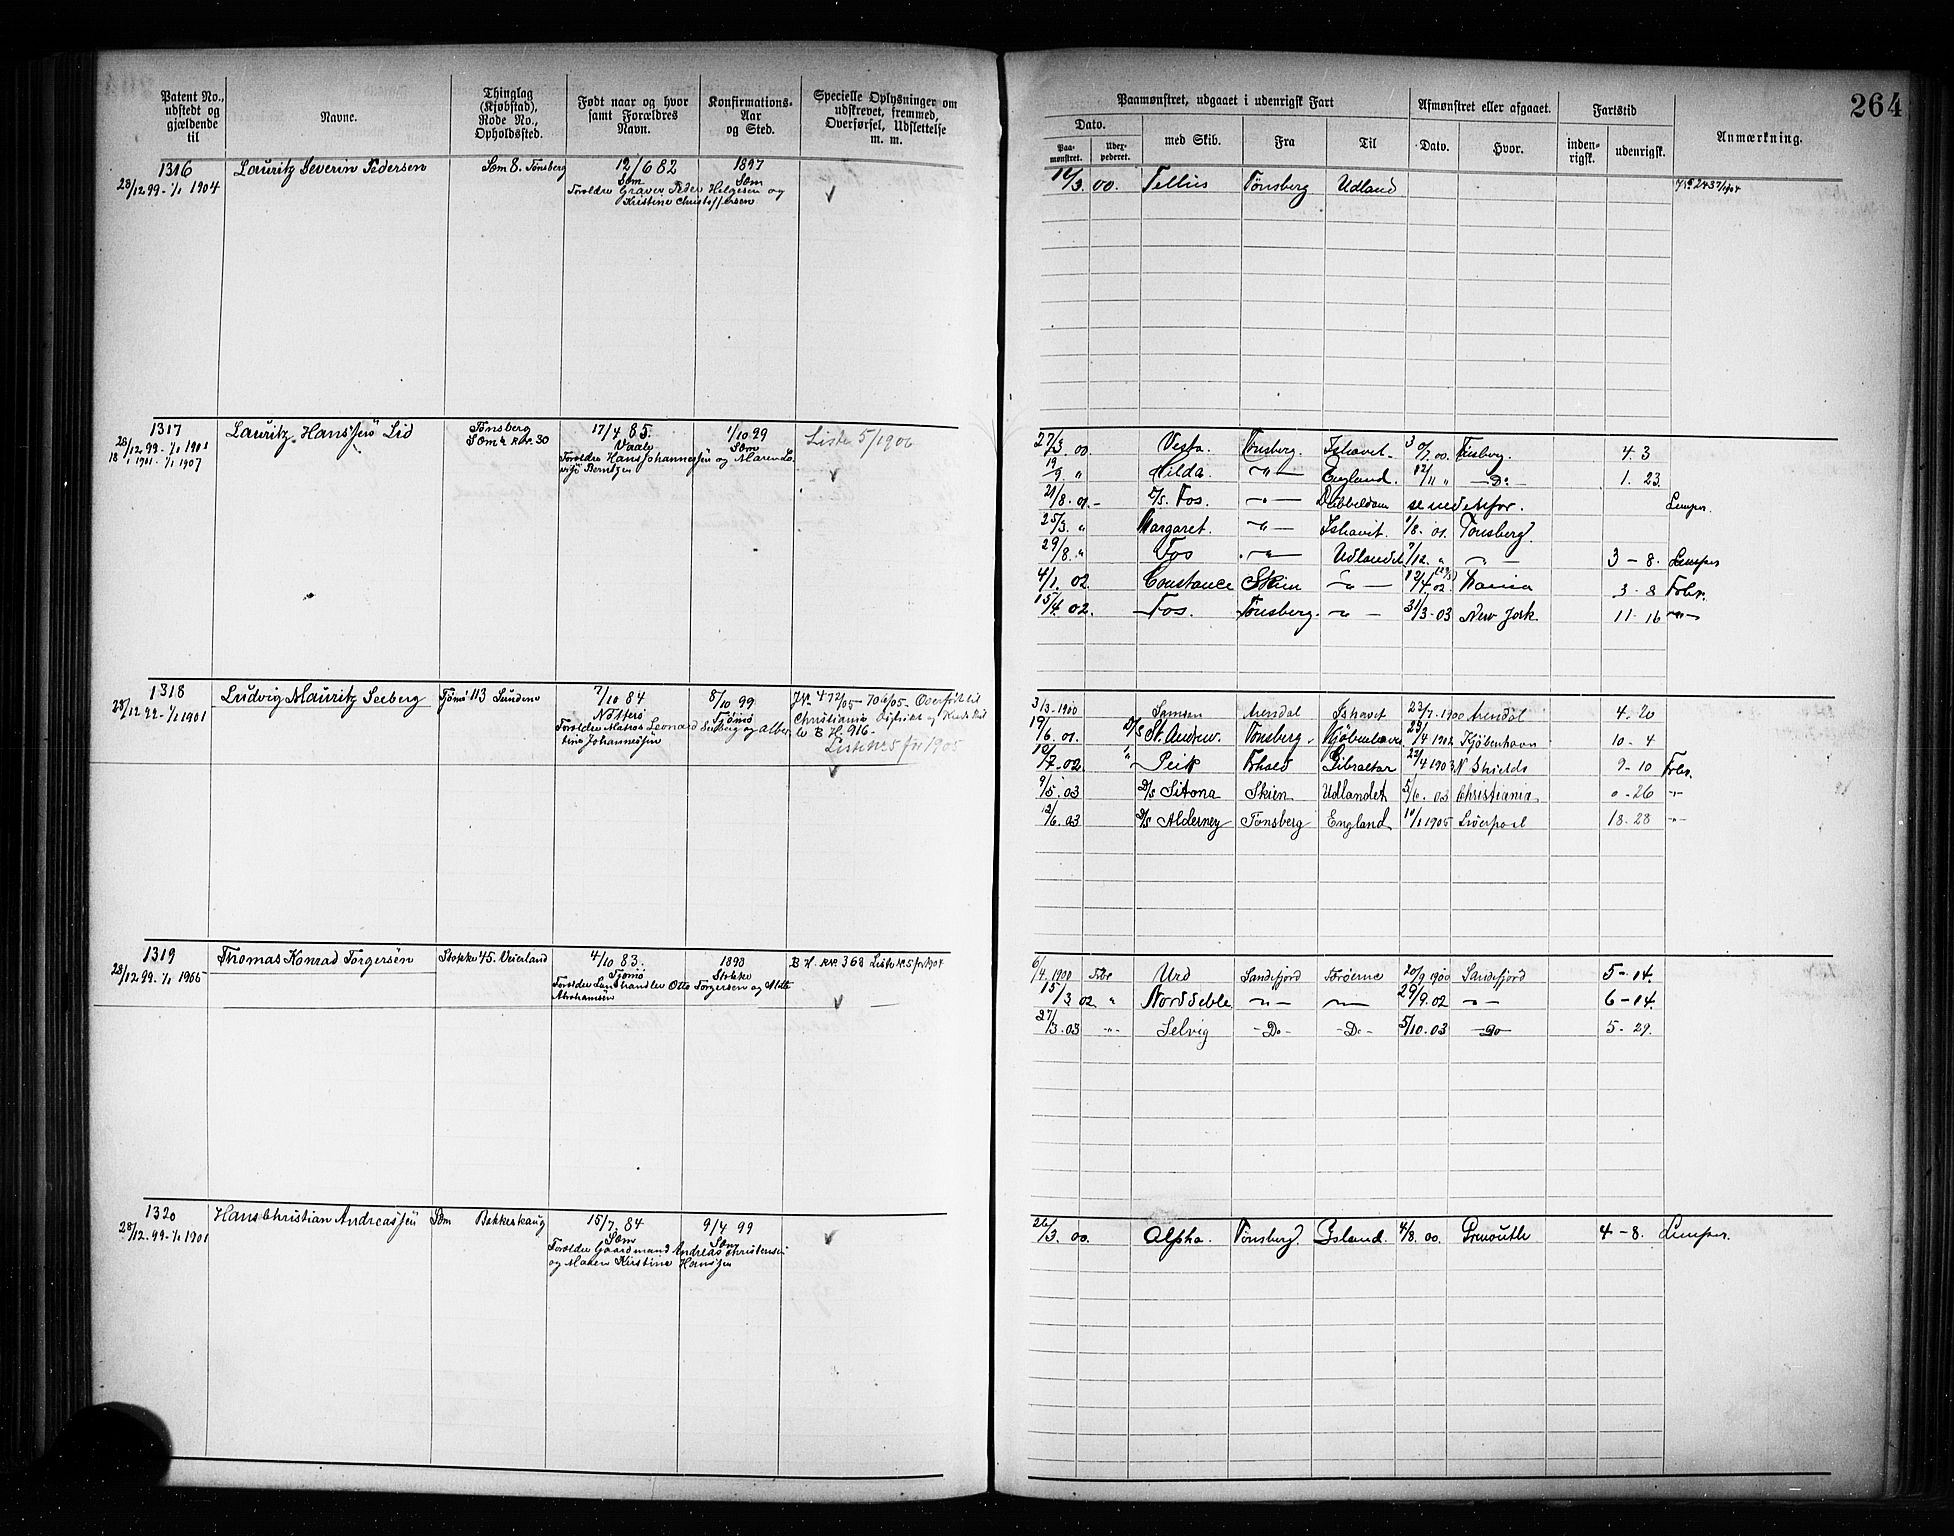 264
Patent No., udstedt og gjældende til
Navne.
Thinglag (Kjøbstad), Rode No., Opholdssted.
Født naar og hvor samt Forældres Navn.
Konfirmations-Aar og Sted.
Specielle Oplysninger om udskrevet, fremmed, Overførsel, Udslettelse m. m.
Paamønstret, udgaaet i udenrigsk Fart
Afmønstret eller afgaaet.
Fartstid
Anmærkning.
Dato.
Paa-mønstret.
Udex-pederet.
med Skib.
Fra
Til
Dato.
Hvor.
inden-rigsk.
udenrigsk.
1316 Lauritz Severin Pedersen Sem 8. Tønsberg 12/6 82 1897
28/12 99 - 1/1 1904 Sem Sem
Foreldre Graver Peder Helgesen og
Kristine Christoffersen
/3. 00. Tellus Tønsberg Udland
1317 Lauritz Hanssen Lid Tønsberg 17/4 85. 1/10 99 Liste 5/1906
28/12 99 - 1/1 1901 Sem 30 Vaale Sem
1/1 1901 - 1/1 1907 Foreldre Hans Johannessen og Maren Lo-
Berntzen
27/3. 00 Vesta. Tønsberg. Ishavet. /7. 00. Tønsberg. 4. 3
19/9 " Hilda. -"- England. 12/11 " -Do- 1. 23.
21/8. 01. - D/S. Fos. -"- se nedenfor. Lemper.
25/3. " Margaret. -"- Ishavet. 1/8. 01. Tønsberg.
29/8. " Fos -"- Udlandet 7/12. " -"- 3 - 8. Lemper
4/1. 02 Constance Skien -"- 12/4. 02. 3 - 8 Fobr.
15/4. 02. Fos. Tønsberg. -"- 31/3. 03 New York 11 - 16 -"-
1318 Ludvig Mauritz Seeberg Tjømø 113 Sundene 7/10 84 8/10 99
28/12 99 - 1/1 1901 Nøtterø Tjømø
Foreldre Matros Leonard Seeberg og Alber-
tine Johannessen
J.No. 472/05 - 706/05. Overført til
Christiania Distrikt og Kreds
B H. 916 -
Liste No. 5 for 1905
3/3. 1900 Samson Arendal Ishavet 23/7. 1900 Arendal 4. 20
19/6. 01. D/S St. Andrew. Tønsberg. Kjøbenhavn 29/4 1902 Kjøbenhavn 10 - 4
10/7. 02. " Peik Gibraltar 22/4 1903 N. Shields 9 - 10 Fobr.
9/5. 03 D/S Sitona Skien Udlandet 5/6. 03 Christiania 0 - 26 -"-
12/6. 03 D/S Alderney Tønsberg England 10/1 1905 Liverpool 18 - 28 -"-
1319 Thomas Konrad Torgersen Stokke 45. Veierland 4/10 83. 1898 B H. 368 Liste No. 5 for 1904
28/12 99. - 1/1 1905 Tjømø Stokke
Foreldre Landhandler Otto Torgersen og
Abrahamsen
6/4. 1900 Urd Sandefjord Færøerne 20/9 1900 Sandefjord 5 - 14.
15/3 02 " Norddeble -"- -"- 29/9. 02 -"- 6 - 14.
27/3. 03 -"- Selvig -Do- -Do- 5/10. 03 -Do- 5 - 29.
1320 Hans Christian Andreassen Sem Bakkeskaug 15/7. 84 9/4 99
28/12. 99 - 1/1 1901 Sem Sem
Foreldre Gaardmand Andreas Christensen
og Maren Kirstine Hanssen
26/3. 00. Alpha. Tønsberg. Island. 4/8. 00. 4 - 8. Lemper.